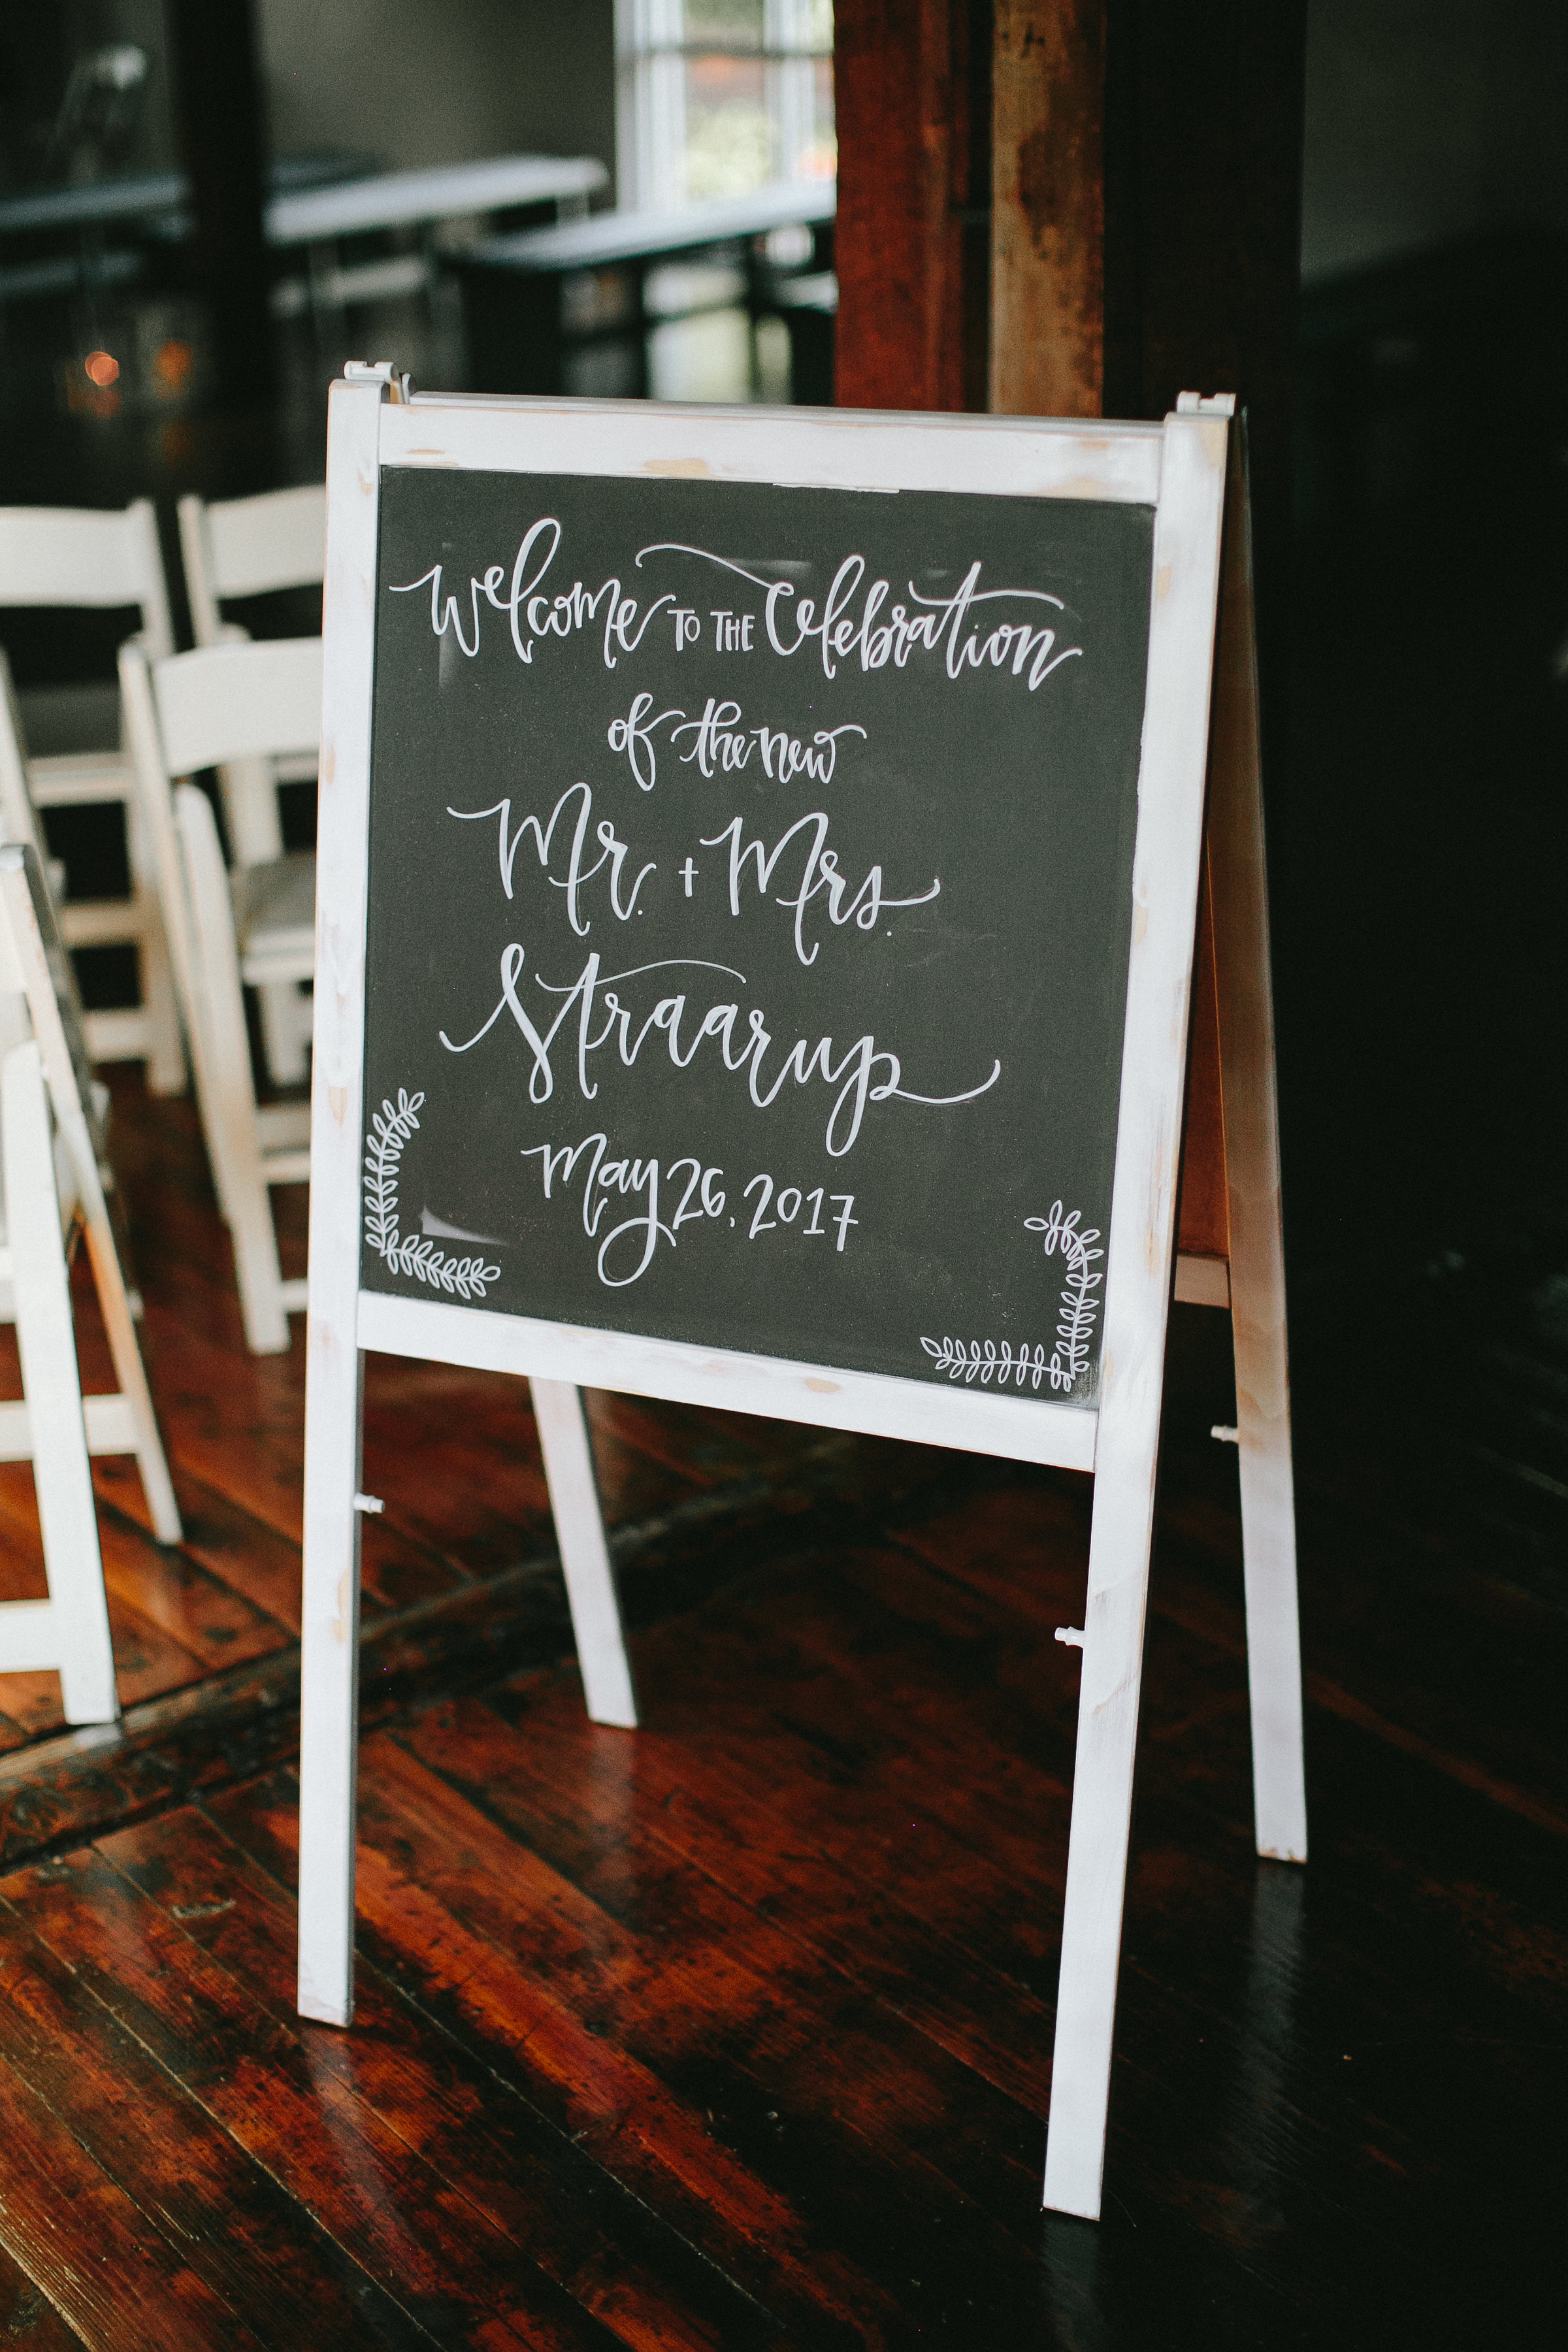 Welcome TO THE Celebration
of the new
Mr. + Mrs.
Straarup
May 26, 2017